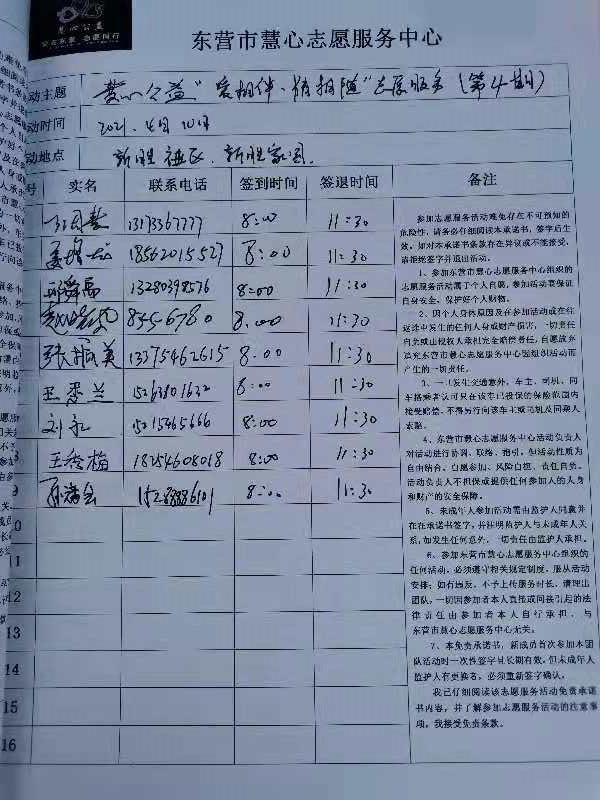 慧心公益
东营市慧心志愿服务中心
动主题 慧心公益"爱相伴、情相随"志愿服务(第4期)
动时间 2021.4月10日
动地点 新胜社区.新胜家园.
号 实名 联系电话 签到时间 签退时间 备注
13173367777 8:00 11:30
18562015527 8:00 11:30
13280398576 8:00 11:30
8456780 8:00 11:30
张振美 13375462615 8:00 11:30
王秀兰 15263801632 8:00 11:30
刘 15215465666 8:00 11:30
王秀梅 18254608018 8:00 11:30
8:00 11:30
0
11
12
13
14
15
16
参加志愿服务活动难免存在不可预知的
危险性,请务必仔细阅读本承诺书,签字后生
效。如对本承诺书条款存在异议或不能接受,
请拒绝签字并退出活动。
1、参加东营市慧心志愿服务中心组织的
志愿服务活动属于个人自愿,参加活动要保证
自身安全,保护好个人财物。
2、因个人身体原因及在参加活动或在往
返途中发生的任何人身或财产损害,一切责任
由负或由授权人承担完全赔偿责任,自愿放弃
追究东营市慧心志愿服务中心强组织活动而
产生的一切责任。
3、一旦发生交通意外,车主、司机、同
车搭乘者认可只在该车已投保的保险范围内
接受赔偿,不得另行向该车主或司机及同乘人
索赔。
4、东营市慧心志愿服务中心活动负责人
对活动进行协调、联络、指引,但活动性质为
自由结合、自愿参加、风险自担、责任自负。
活动负责人不担保或提供任何参加人的人身
和财产的安全保障。
5、未成年人参加活动需由监护人同意并
在在承诺书签字,并注明监护人与未成年人关
系,如发生任何意外,一切责任由监护人承担。
6、参加东营市慧心志愿服务中心组织的
任何活动,必须遵守相关规定制度,服从活动
安排;如有违反,不予上传服务时长,清理出
团队,一切因参加者本人直接或间接引起的法
律责任由参加者本人自行承担,与
东营市慧心志愿服务中心无关。
7、本免责承诺书,新成员首次参加本团
队活动时一次性签字且长期有效,但未成年人
监护人有更换者,必须重新签字确认。
我已仔细阅读该志愿服务活动免责承诺
书内容,并了解参加志愿服务活动的注意事
项,我接受免责条款。